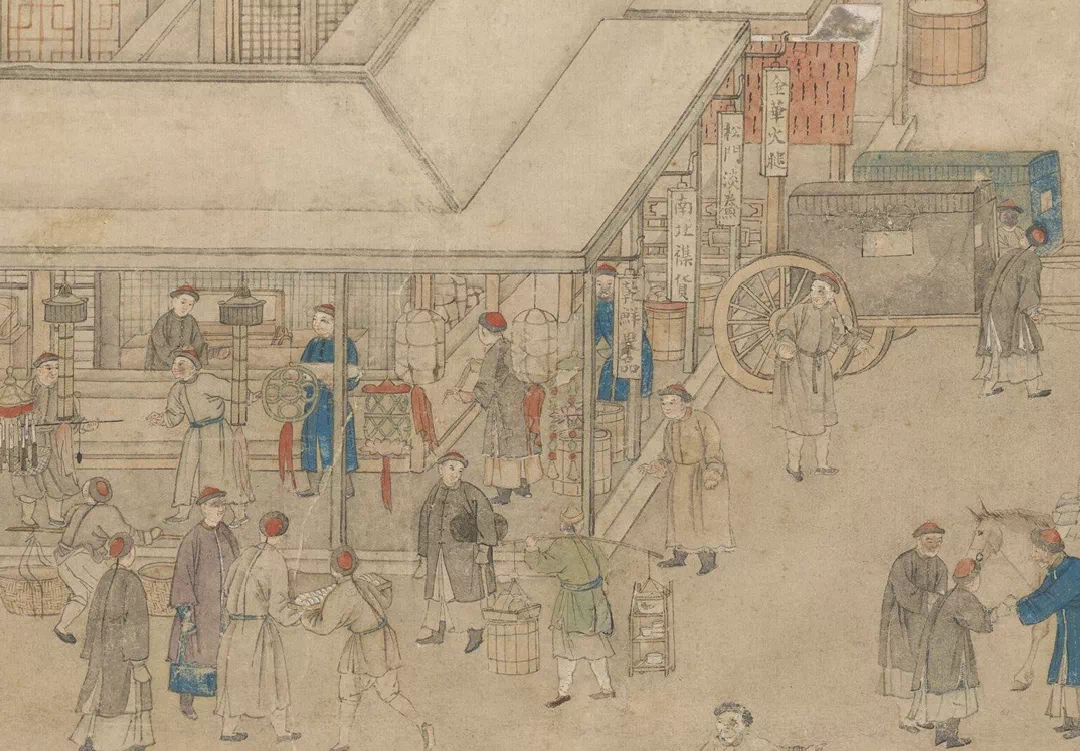 金華火腿
松門淡鯗
南北襍貨
鮮菓品